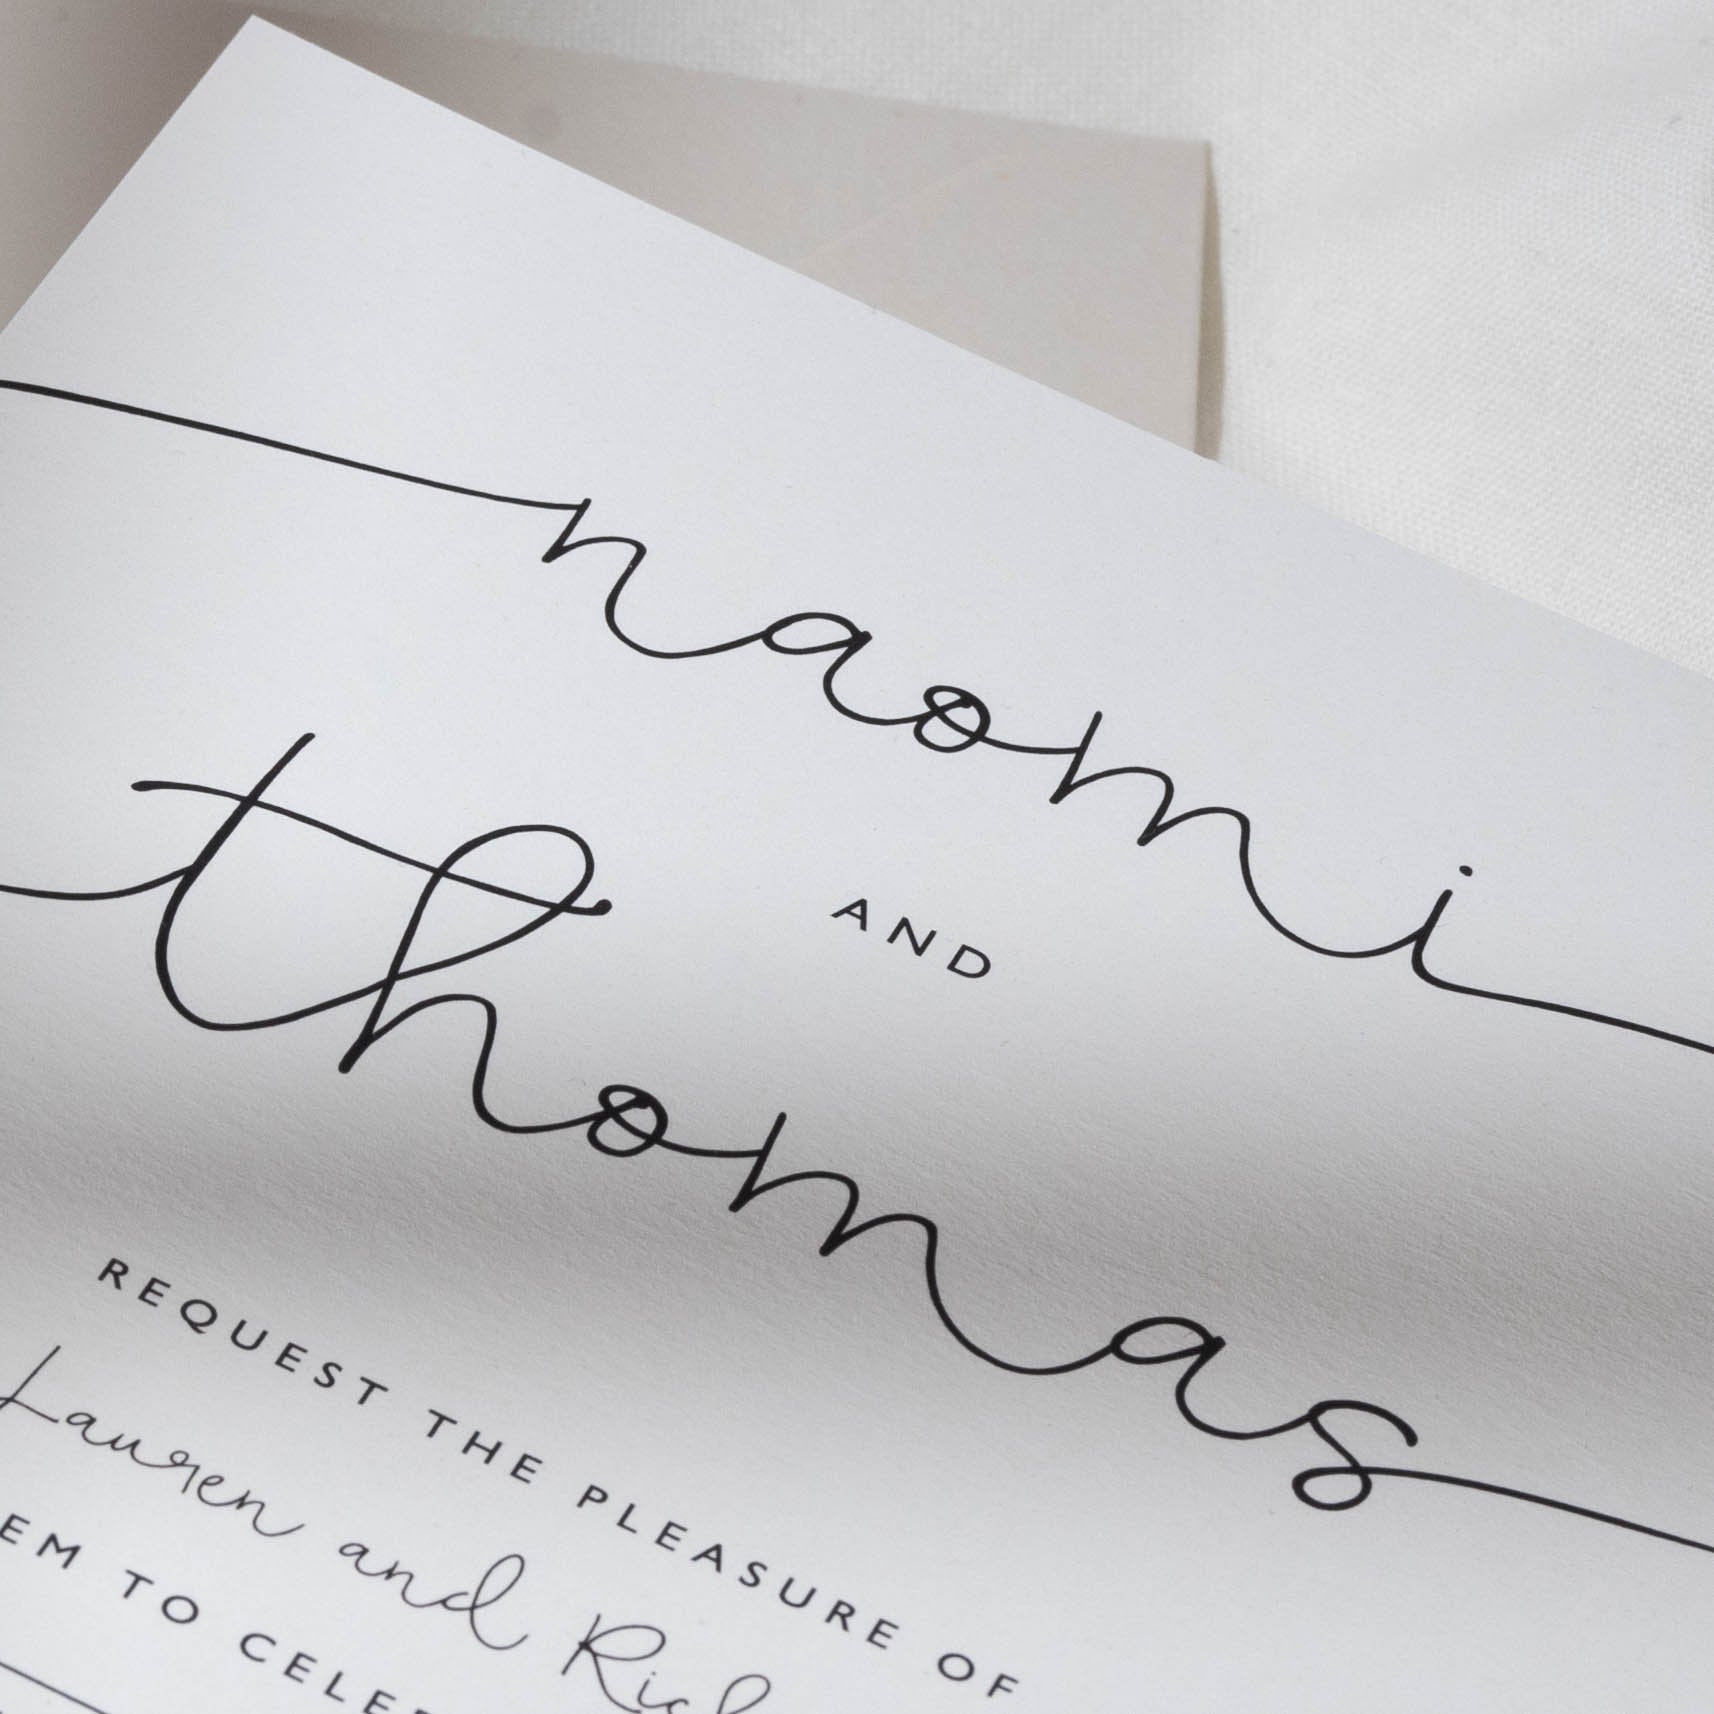 naomi
AND
thomas
REQUEST THE PLEASURE OF
Lauren and
TO